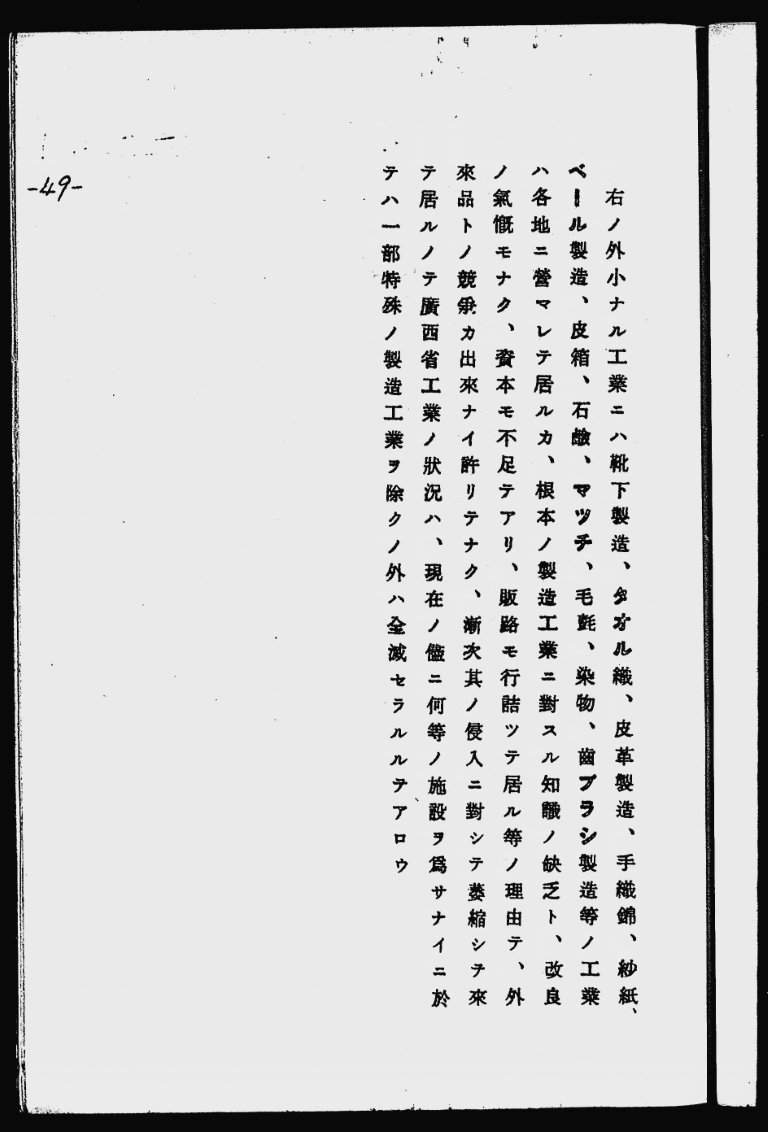 右ノ外小ナル工業ニハ靴下製造、タオル織、皮革製造、手織錦、紗紙、
ベール製造、皮箱、石鹼、マツチ、毛氈、染物、齒ブラシ製造等ノ工業
ハ各地ニ營マレテ居ルカ、根本ノ製造工業ニ對スル知識ノ缺乏ト、改良
ノ氣慨モナク、資本モ不足テアリ、販路モ行詰ツテ居ル等ノ理由テ、外
來品トノ競爭カ出來ナイ許リテナク、漸次其ノ侵入ニ對シテ萎縮シテ來
テ居ルノテ廣西省工業ノ狀況ハ、現在ノ儘ニ何等ノ施設ヲ爲サナイニ於
テハ一部特殊ノ製造工業ヲ除クノ外ハ全滅セラルルテアロウ
-49-